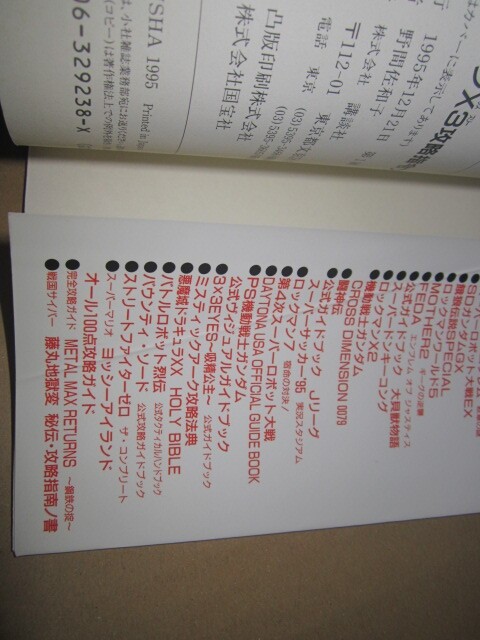 X3攻略指
1995年12月21日
野間佐和子
株式会社 講談社
〒112-01
電話 東京
凸版印刷株式会社
株式会社国宝社
SHA 1995 Printed in
06-329238-X
SDガンダムGX
餓狼伝説SPECIAL
ロックマンワールド5
MOTHER2 ギーグの逆襲
FEDA エンブレム オブ ジャスティス
公式ガイドブック 大貝獣物語
スーパードンキーコング
ロックマンX2
機動戦士ガンダム
CROSS DIMENSION 0079
闘神伝
公式ガイドブック Jリーグ
スーパーサッカー'95 実況スタジアム
ロックマン7 宿命の対決!
第4次スーパーロボット大戦
DAYTONA USA OFFICIAL GUIDE BOOK
PS機動戦士ガンダム
公式ヴィジュアルガイドブック
3×3EYES〜吸精公主〜 公式ガイドブック
ミスティックアーク攻略法典
悪魔城ドラキュラXX HOLY BIBLE
バトルロボット烈伝 公式タクティカルハンドブック
バウンティ・ソード 公式攻略ガイドブック
ストリートファイターゼロ ザ・コンプリート
スーパーマリオ ヨッシーアイランド
オール100点攻略ガイド
完全攻略ガイド METAL MAX RETURNS 〜鋼鉄の掟〜
戦国サイバー 藤丸地獄変 秘伝・攻略指南ノ書